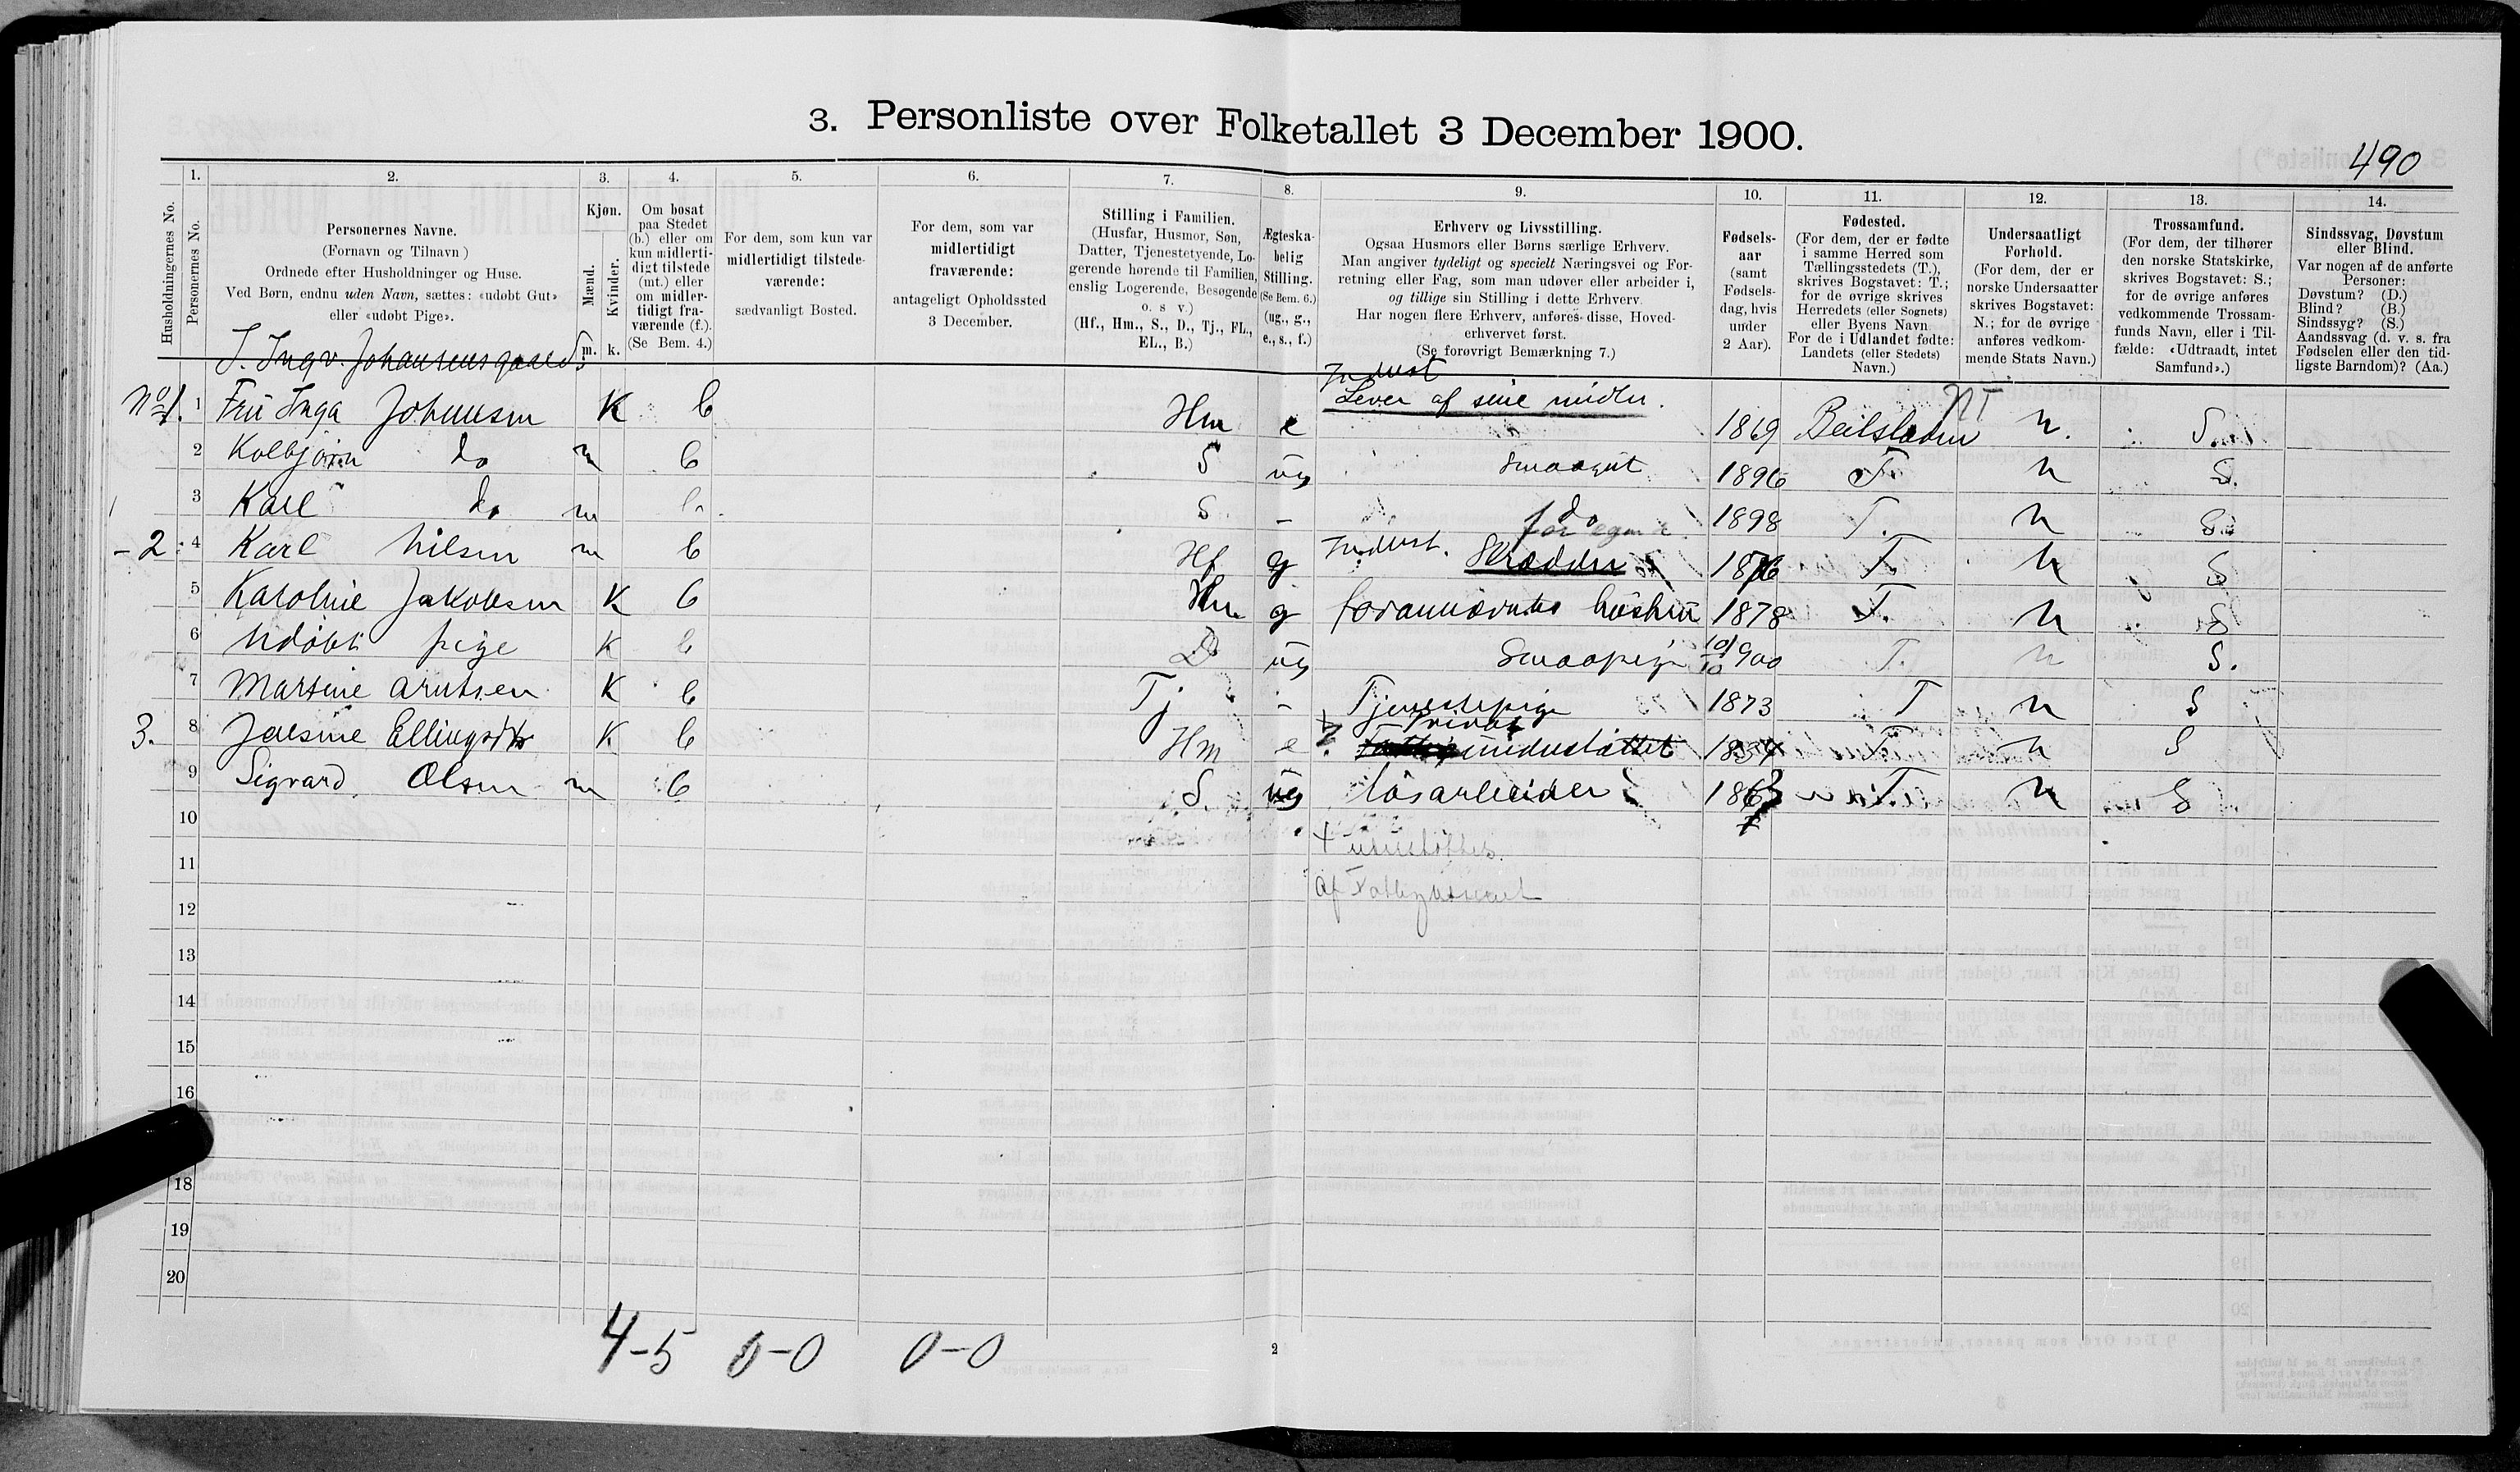 3. Personliste over Folketallet 3 December 1900.
490
Husholdningernes No.
1.
Personernes No.
2.
Personernes Navne.
(Fornavn og Tilnavn)
Ordnede efter Husholdninger og Huse.
Ved Børn, endnu uden Navn, sættes: «udøbt Gut»
eller «udøbt Pige».
3.
Kjøn.
Mænd.
Kvinder.
m. k.
4.
Om bosat
paa Stedet
(b.) eller om
kun midlerti-
digt tilstede
(mt.) eller
om midler-
tidigt fra-
værende (f.).
(Se Bem. 4.)
5.
For dem, som kun var
midlertidigt tilstede-
værende:
sædvanligt Bosted.
6.
For dem, som var
midlertidigt
fraværende:
antageligt Opholdssted
3 December.
7.
Stilling i Familien.
(Husfar, Husmor, Søn,
Datter, Tjenestetyende, Lo-
gerende hørende til Familien,
enslig Logerende, Besøgende
o. s v.)
(Hf., Hm., S., D., Tj., FL.,
EL., B.)
8.
Ægteska-
belig
Stilling.
(Se Bem. 6.)
(ug., g.,
e., s., f.)
9.
Erhverv og Livsstilling.
Ogsaa Husmors eller Børns særlige Erhverv.
Man angiver tydeligt og specielt Næringsvei og For-
retning eller Fag, som man udøver eller arbeider i,
og tillige sin Stilling i dette Erhverv.
Har nogen flere Erhverv, anføres disse, Hoved-
erhvervet først.
(Se forøvrigt Bemærkning 7.)
10.
Fødsels-
aar
(samt
Fødsels-
dag, hvis
under
2 Aar).
11.
Fødested.
(For dem, der er fødte
i samme Herred som
Tællingsstedets (T.),
skrives Bogstavet: T.;
for de øvrige skrives
Herredets (eller Sognets)
eller Byens Navn
For de i Udlandet fødte:
Landets (eller Stedets)
Navn.)
12.
Undersaatligt
Forhold.
(For dem, der er
norske Undersaatter
skrives Bogstavet:
N.; for de øvrige
anføres vedkom-
mende Stats Navn.)
13.
Trossamfund.
(For dem, der tilhører
den norske Statskirke,
skrives Bogstavet: S.;
for de øvrige anføres
vedkommende Trossam-
funds Navn, eller i Til-
fælde: «Udtraadt, intet
Samfund».)
14.
Sindssvag, Døvstum
eller Blind.
Var nogen af de anførte
Personer:
Døvstum? (D.)
Blind? (B.)
Sindssyg? (S.)
Aandssvag (d. v. s. fra
Fødselen eller den tid-
ligste Barndom)? (Aa.)
Indust
No 1. 1 Fru Inga Johansen K b Hm e Lever af sine midler. 1869 n. S.
2 Kolbjørn do m b S ug Smaagut 1896 T. n S.
3 Karl do m b. S. - do 1898 T. n S.
for egen r.
- 2 4 Karl Nilsen m b Hf g Indust. Skrædder 1876 T n S
5 Karoline Jakobsen K b Hm g forannævntes hustru 1878 T. n S
6 Udøbt pige K b D ug Smaapige 10/10 900 T. n S.
7 Martine Arntsen K b Tj - Tjenestepige 1873 T n S
Privat
3. 8 Jaesine Ellingsdtr K b Hm e understøttet 1834 T. n S
9 Sigvard Olsen m b S. ug løsarbeider 1863 T. n S
10
+ understøttes
11
af Fattigvæsenet
12
13
14
15
16
18
19
20
4-5 0-0 0-0
2